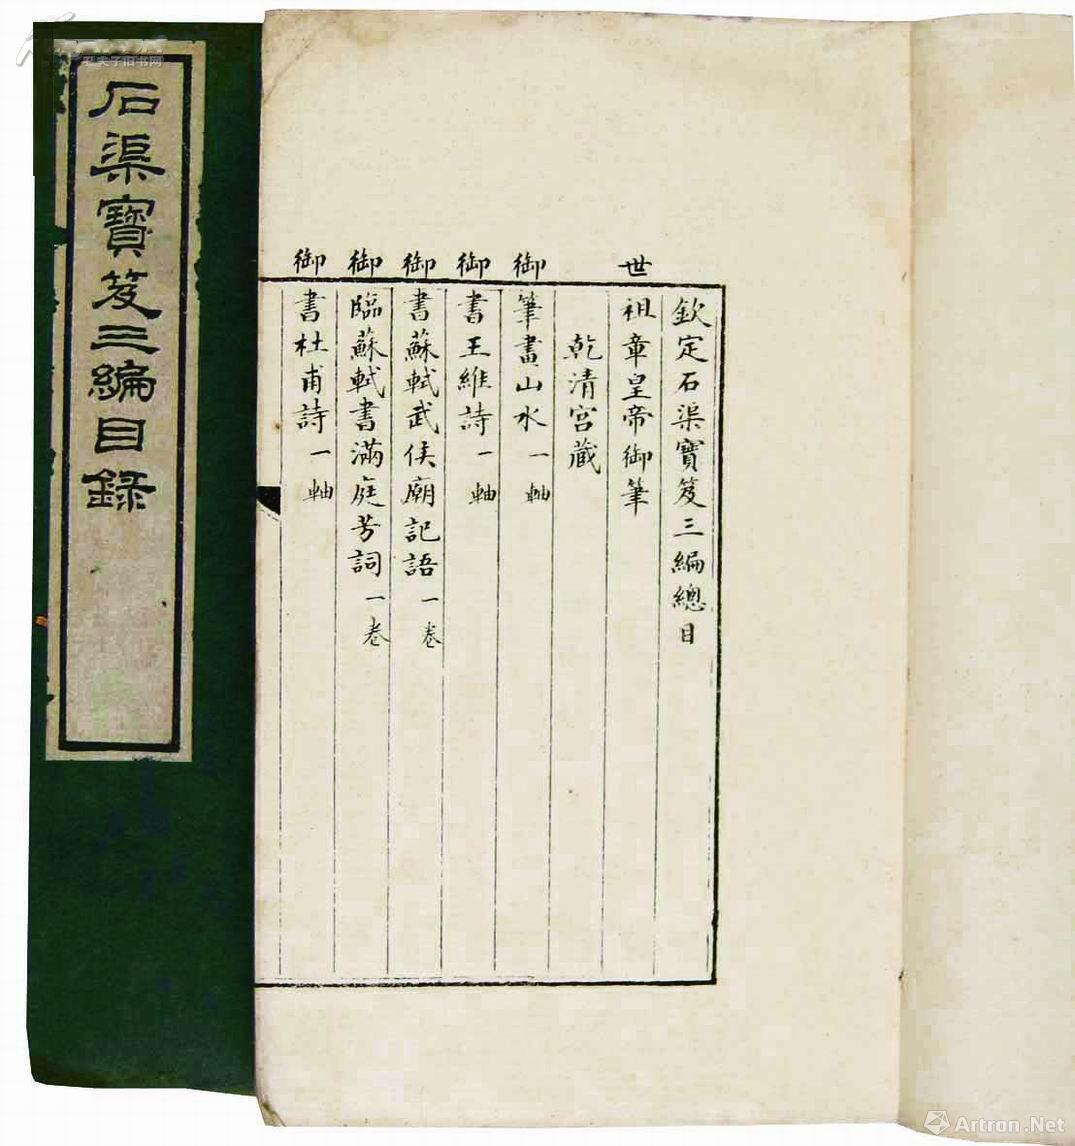 欽定石渠寶笈三編總目
世祖章皇帝御筆
乾清宮藏
御筆畫山水一軸
御書王維詩一軸
御書蘇軾武侯廟記語一卷
御臨蘇軾書滿庭芳詞一卷
御書杜甫詩一軸
石渠寶笈三編目錄
孔夫子旧书网
Artron.Net